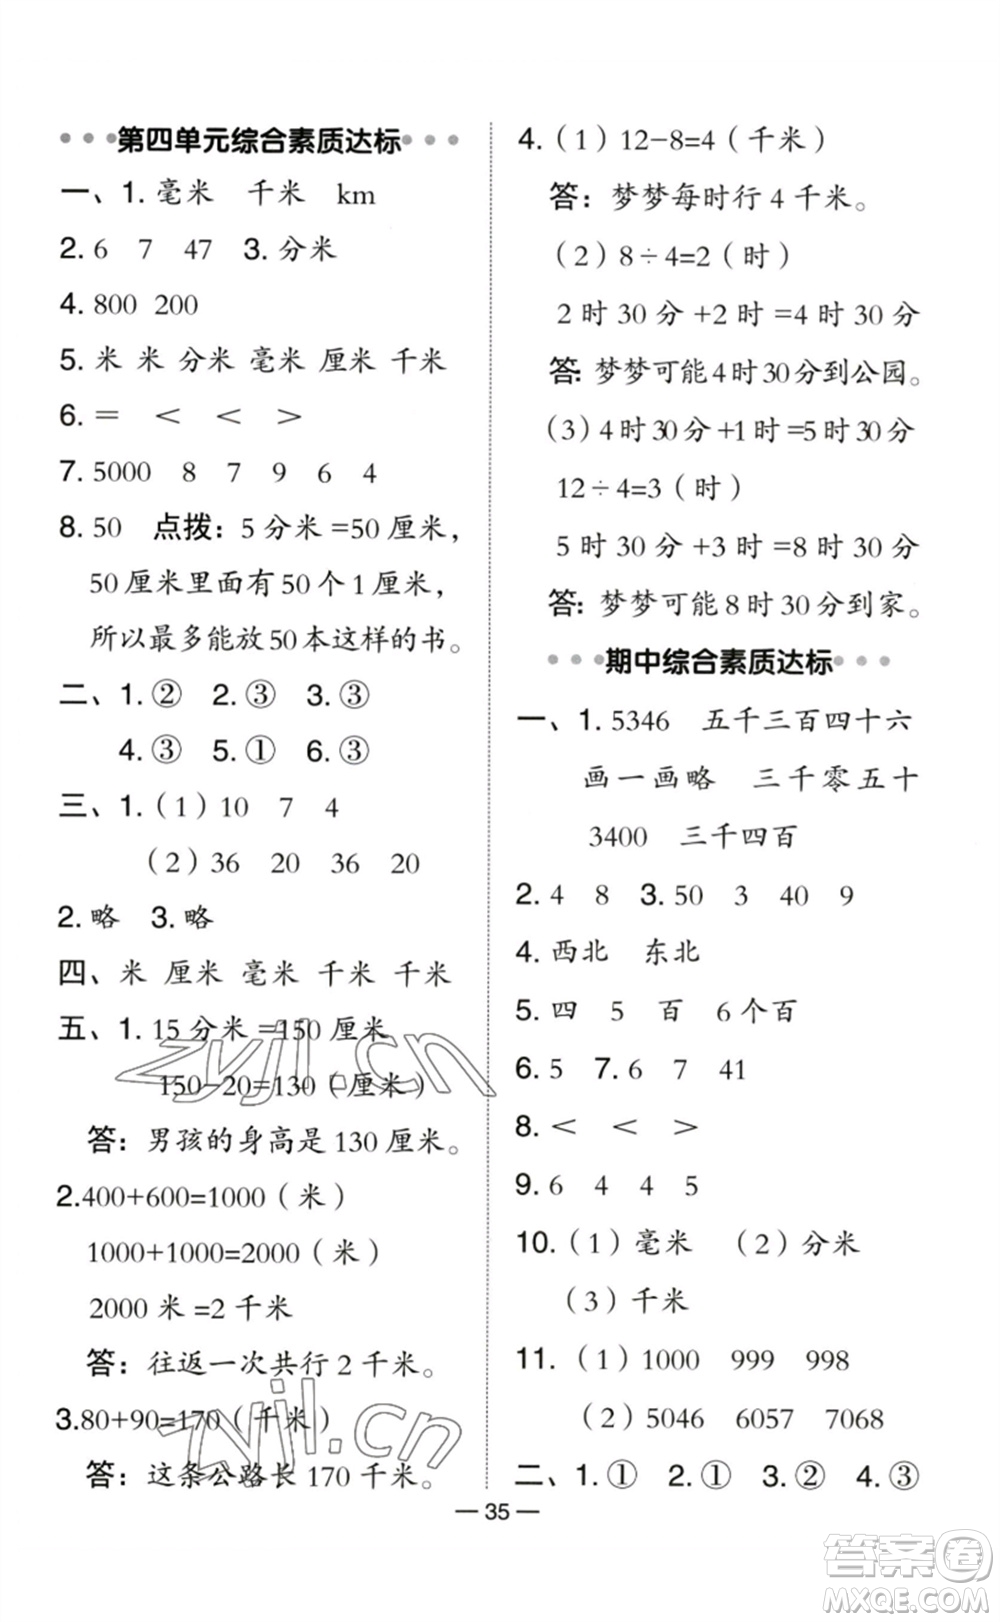 第四单元综合素质达标
一、1. 毫米 千米 km
2. 6 7 47 3. 分米
4. 800 200
5. 米 米 分米 毫米 厘米 千米
6. = < < >
7. 5000 8 7 9 6 4
8. 50 点拨：5 分米 =50 厘米，
50 厘米里面有 50 个 1 厘米，
所以最多能放 50 本这样的书。
二、1. ② 2. ③ 3. ③
4. ③ 5. ① 6. ③
三、1.（1）10 7 4
（2）36 20 36 20
2. 略 3. 略
四、米 厘米 毫米 千米 千米
五、1. 15 分米 =150 厘米
150-20=130（厘米）
答：男孩的身高是 130 厘米。
2.400+600=1000（米）
1000+1000=2000（米）
2000 米 =2 千米
答：往返一次共行 2 千米。
3.80+90=170（千米）
答：这条公路长 170 千米。
4.（1）12-8=4（千米）
答：梦梦每时行 4 千米。
（2）8÷4=2（时）
2 时 30 分 +2 时 =4 时 30 分
答：梦梦可能 4 时 30 分到公园。
（3）4 时 30 分 +1 时 =5 时 30 分
12÷4=3（时）
5 时 30 分 +3 时 =8 时 30 分
答：梦梦可能 8 时 30 分到家。
期中综合素质达标
一、1. 5346 五千三百四十六
画一画略 三千零五十
3400 三千四百
2. 4 8 3. 50 3 40 9
4. 西北 东北
5. 四 5 百 6 个百
6. 5 7. 6 7 41
8. < < >
9. 6 4 4 5
10.（1）毫米 （2）分米
（3）千米
11.（1）1000 999 998
（2）5046 6057 7068
二、1. ① 2. ① 3. ② 4. ③
— 35 —
zyjl.cn
zyjl.cn
答案圈
MXQE.COM